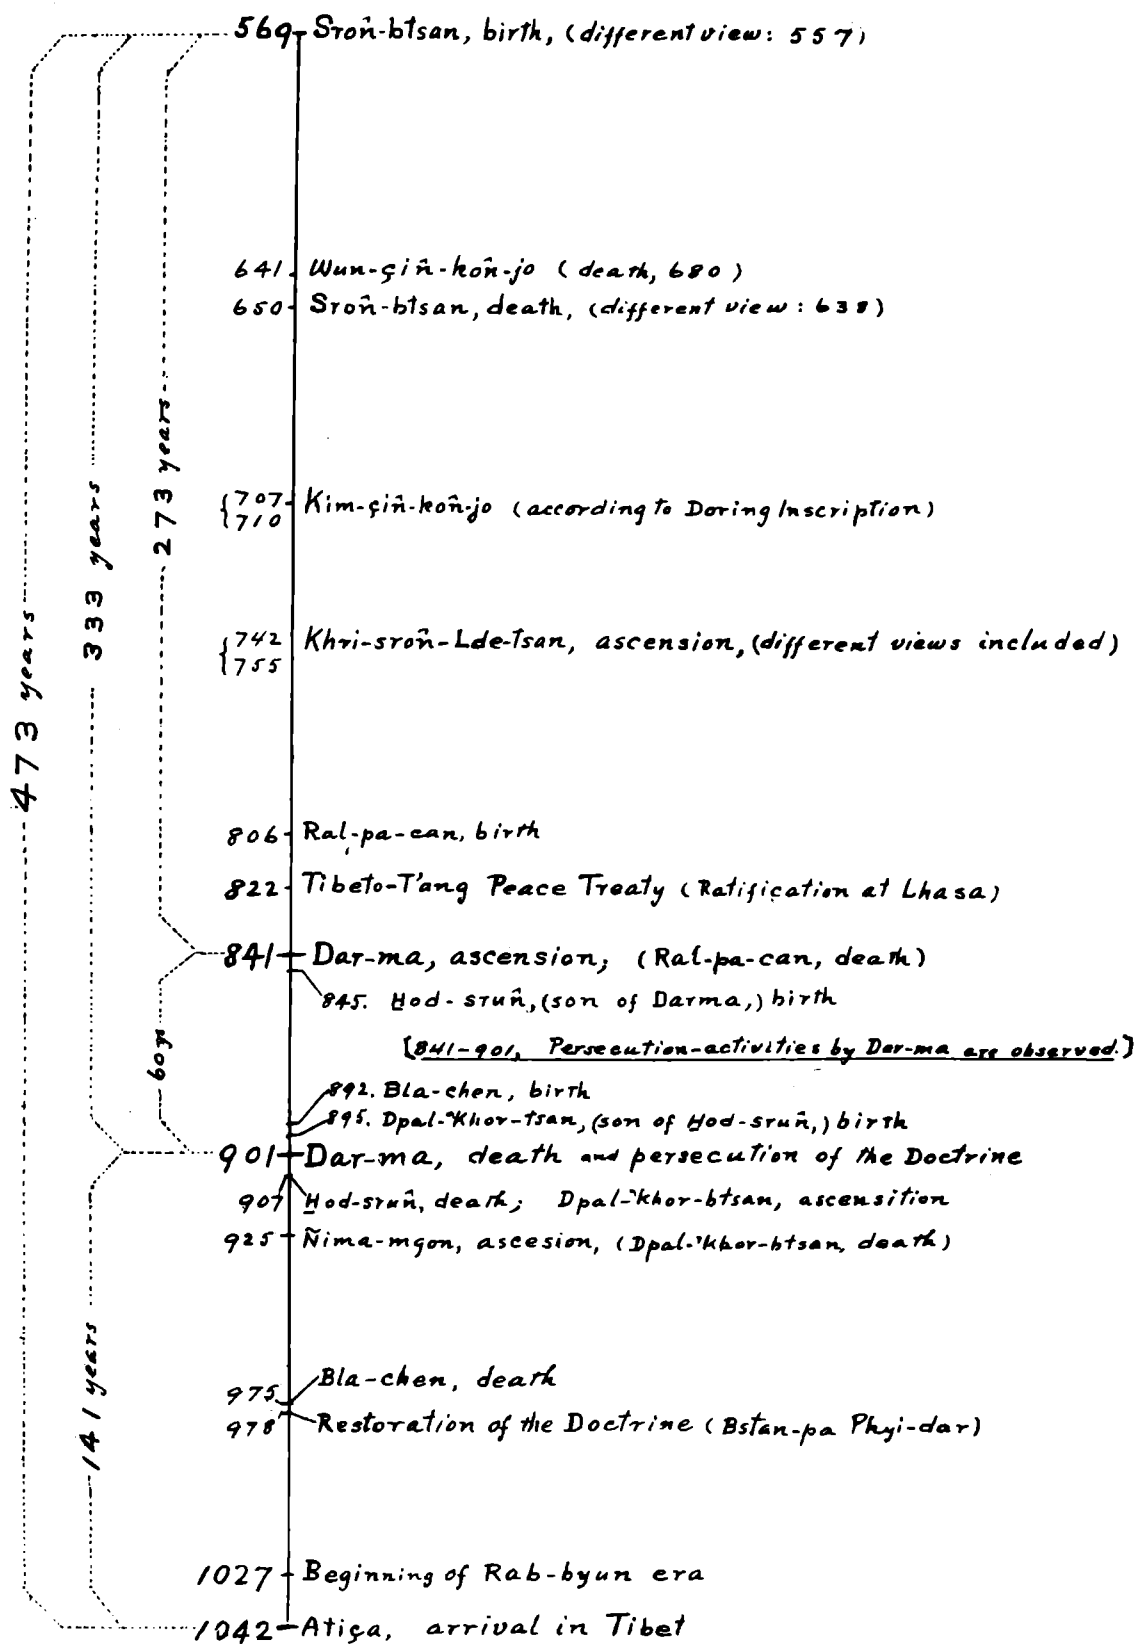 569 Sroñ-btsan, birth, (different view: 557)
641 Wun-çiñ-koñ-jo (death, 680)
650 Sroñ-btsan, death, (different view: 638)
{707 Kim-çiñ-koñ-jo (according to Doring Inscription)
{710
{742 Khri-sroñ-Lde-tsan, ascension, (different views included)
{755
806 Ral-pa-can, birth
822 Tibeto-T'ang Peace Treaty (Ratification at Lhasa)
841 Dar-ma, ascension; (Ral-pa-can, death)
845. Hod-sruñ, (son of Darma,) birth
[841-901, Persecution-activities by Dar-ma are observed.]
892. Bla-chen, birth
895. Dpal-'Khor-tsan, (son of Hod-sruñ,) birth
901 Dar-ma, death and persecution of the Doctrine
907 Hod-sruñ, death; Dpal-'khor-btsan, ascensition
925 Ñima-mgon, ascesion, (Dpal-'khor-btsan, death)
975 Bla-chen, death
978 Restoration of the Doctrine (Bstan-pa Phyi-dar)
1027 Beginning of Rab-byun era
1042 Atiça, arrival in Tibet
473 years
333 years
273 years
60ys
141 years